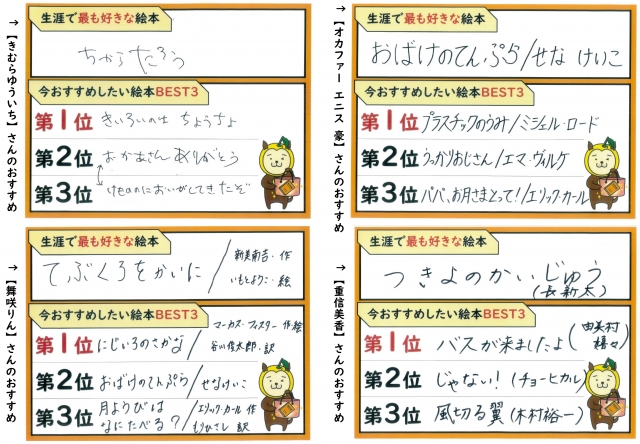 →【きむらゆういち】さんのおすすめ
生涯で最も好きな絵本
ちからたろう
今おすすめしたい絵本BEST3
第1位 きいろいのは ちょうちょ
第2位 おかあさん ありがとう
第3位 けものの においがしてきたぞ
→【オカファー エニス 豪】さんのおすすめ
生涯で最も好きな絵本
おばけのてんぷら/せな けいこ
今おすすめしたい絵本BEST3
第1位 プラスチックのうみ/ミシェル・ロード
第2位 うっかりおじさん/エマ・ヴィルケ
第3位 パパ、お月さまとって!/エリック・カール
→【舞咲りん】さんのおすすめ
生涯で最も好きな絵本
てぶくろをかいに/新美南吉・作
いもとようこ・絵
今おすすめしたい絵本BEST3
第1位 にじいろのさかな/マーカス・フィスター 作絵
谷川俊太郎・訳
第2位 おばけのてんぷら/せなけいこ
第3位 月ようびは
なにたべる?/エリック・カール 作
もりひさし 訳
→【重信美香】さんのおすすめ
生涯で最も好きな絵本
つきよのかいじゅう
(長新太)
今おすすめしたい絵本BEST3
第1位 バスが来ましたよ(由美村嬉々)
第2位 じゃない!(チョーヒカル)
第3位 風切る翼(木村裕一)